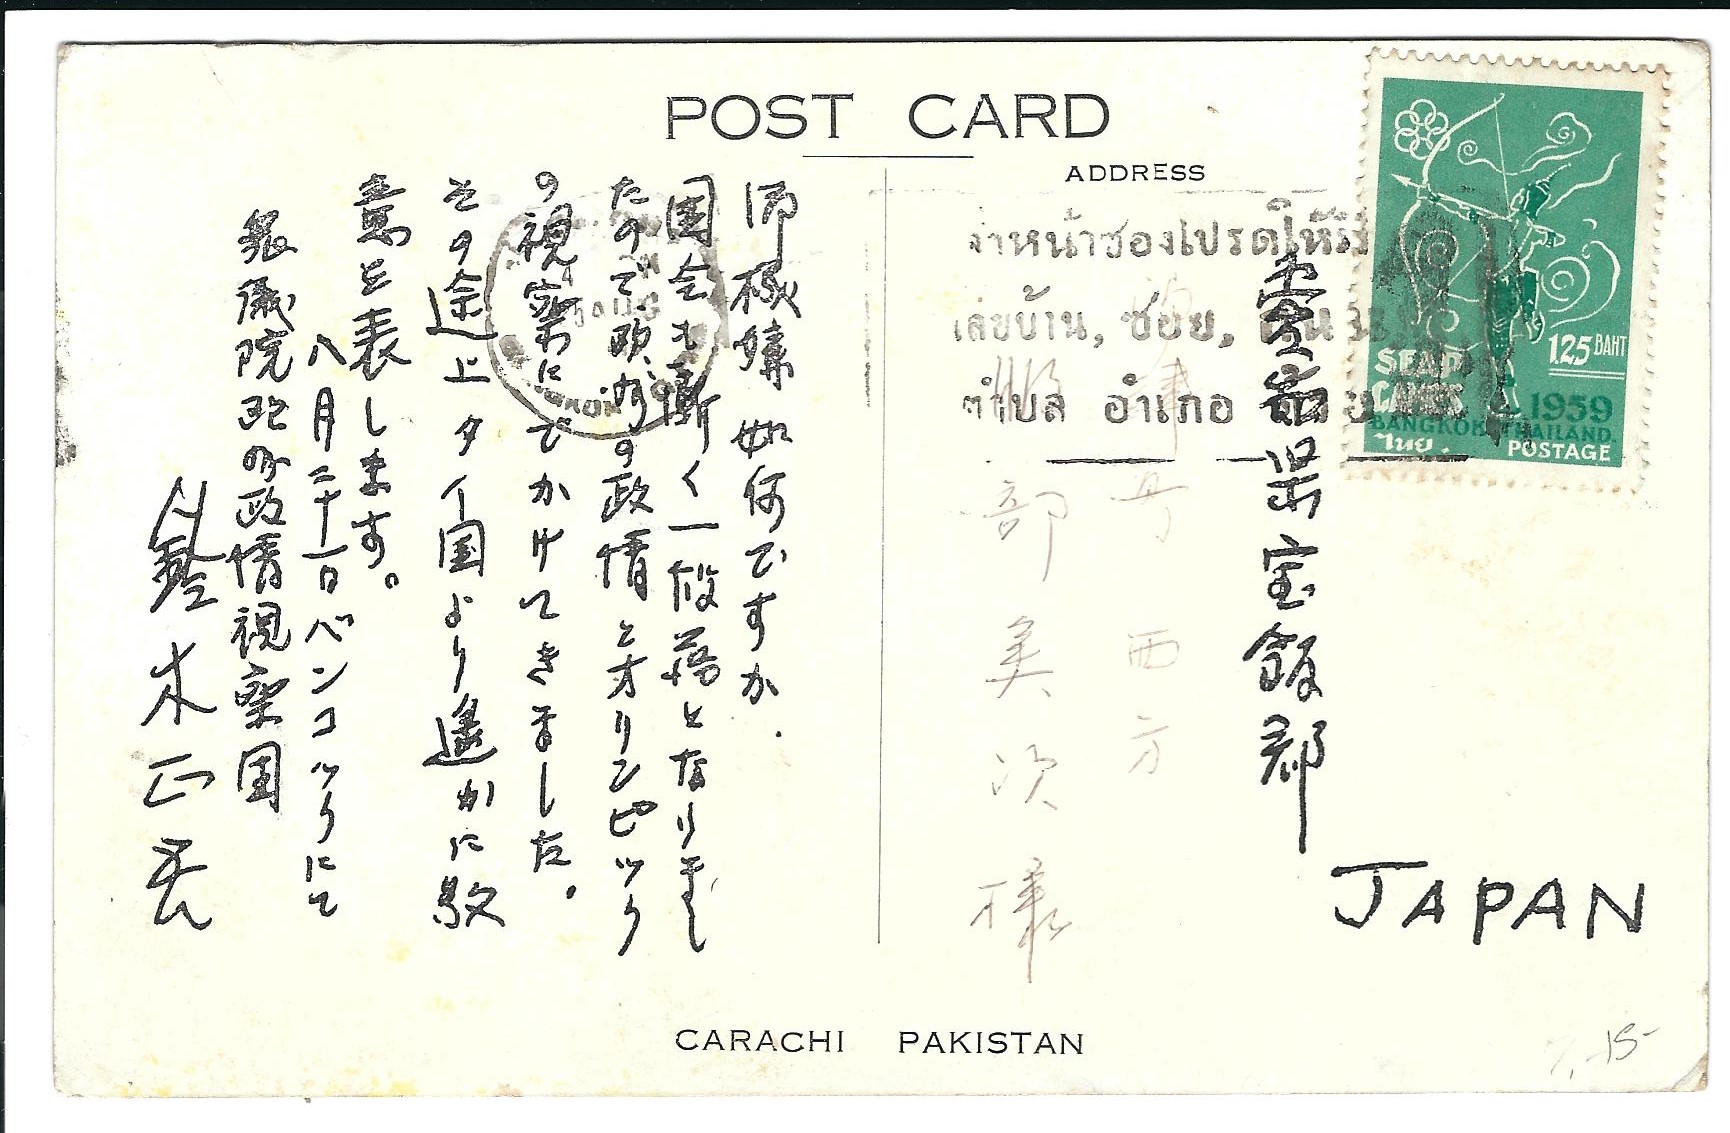 POST CARD
ADDRESS
御機嫌如何ですか.
国会も漸く一段落となりまし
たので欧州の政情とオリンピック
の視察にでかけてきました。
その途上タイ国より遙かに敬
意を表します。
八月二十一日バンコックにて
衆議院欧州政情視察団
鈴木正
จ่าหน้าซองโปรดให้มี
เลขบ้าน, ซอย, ถนน
ตำบล อำเภอ
愛知県宝飯郡
西方
部美次様
JAPAN
SEAP
GAMES
1959
BANGKOK THAILAND.
ไทย.
POSTAGE
1.25 BAHT
CARACHI PAKISTAN
15-